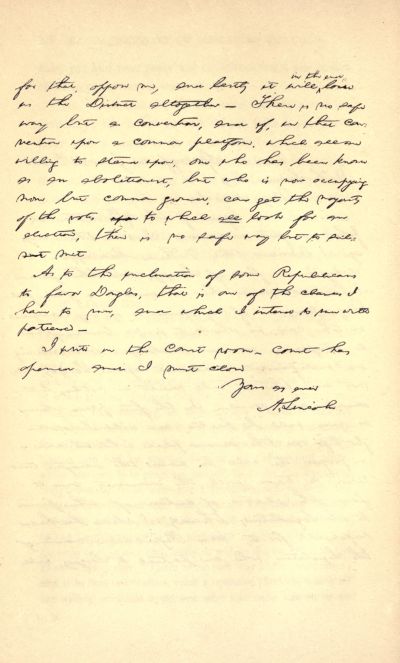 in the end,
for that, oppose me, and lastly it will lose
us the District altogether — There is no safe
way but a convention, and if, in that con-
vention upon a common platform, which all are
willing to stand upon, one who has been known
as an abolitionist, but who is now occupying
none but common ground, can get the majority
of the votes to which all look for an
election, there is no safe way but to sub-
mit
As to the inclination of some Republicans
to favor Douglas, that is one of the chances I
have to run, and which I intend to run with
patience —
I write in the court room — Court has
opened and I must close
Yours as ever
A. Lincoln